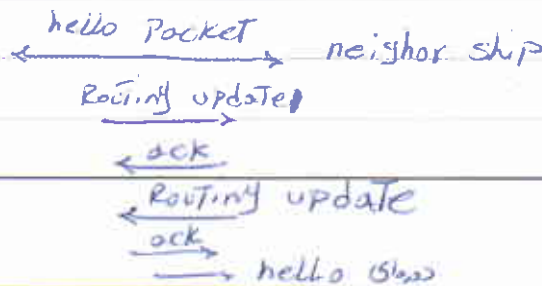 hello Packet neighor ship
Routing update
ack
Routing update
ack
hello